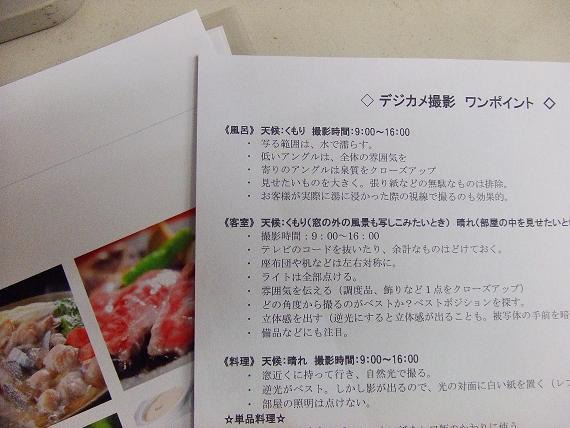 ◇ デジカメ撮影 ワンポイント ◇
《風呂》 天候:くもり 撮影時間:9:00～16:00
・ 写る範囲は、水で濡らす。
・ 低いアングルは、全体の雰囲気を
・ 寄りのアングルは泉質をクローズアップ
・ 見せたいものを大きく。張り紙などの無駄なものは排除。
・ お客様が実際に湯に浸かった際の視線で撮るのも効果的。
《客室》 天候:くもり(窓の外の風景も写しこみたいとき) 晴れ(部屋の中を見せたいと
・ 撮影時間：9：00～16：00
・ テレビのコードを抜いたり、余計なものはどけておく。
・ 座布団や机などは左右対称に。
・ ライトは全部点ける。
・ 雰囲気を伝える（調度品、飾りなど1点をクローズアップ）
・ どの角度から撮るのがベストか？ベストポジションを探す。
・ 立体感を出す（逆光にすると立体感が出ることも。被写体の手前を暗
・ 備品などにも注目。
《料理》 天候:晴れ 撮影時間:9:00～16:00
・ 窓近くに持って行き、自然光で撮る。
・ 逆光がベスト。しかし影が出るので、光の対面に白い紙を置く（レフ
・ 部屋の照明は点けない。
☆単品料理☆